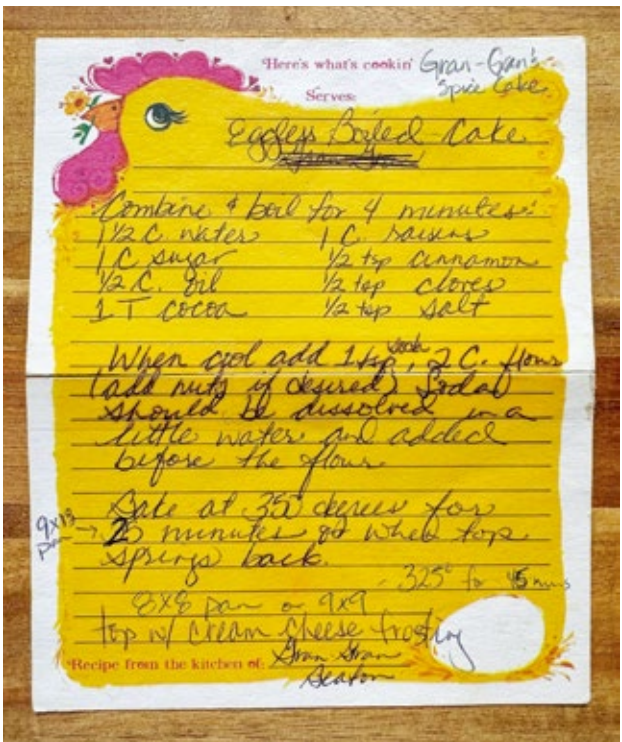 Here's what's cookin' Gran-Gran's
Spice Cake
Serves:
Eggless Boiled Cake
Combine & boil for 4 minutes:
1 1/2 C. water 1 C. raisins
1 C sugar 1/2 tsp cinnamon
1/2 C. oil 1/2 tsp cloves
1 T cocoa 1/2 tsp salt
When cool add 1 tsp soda, 2 C. flour
(add nuts if desired) Soda
should be dissolved in a
little water and added
before the flour.
Bake at 350 degrees for
9x13 pan → 25 minutes or when top
springs back.
- 325° for 45 mins
8x8 pan or 9x9
top w/ cream cheese frosting
Recipe from the kitchen of: Gran Gran
Seaton